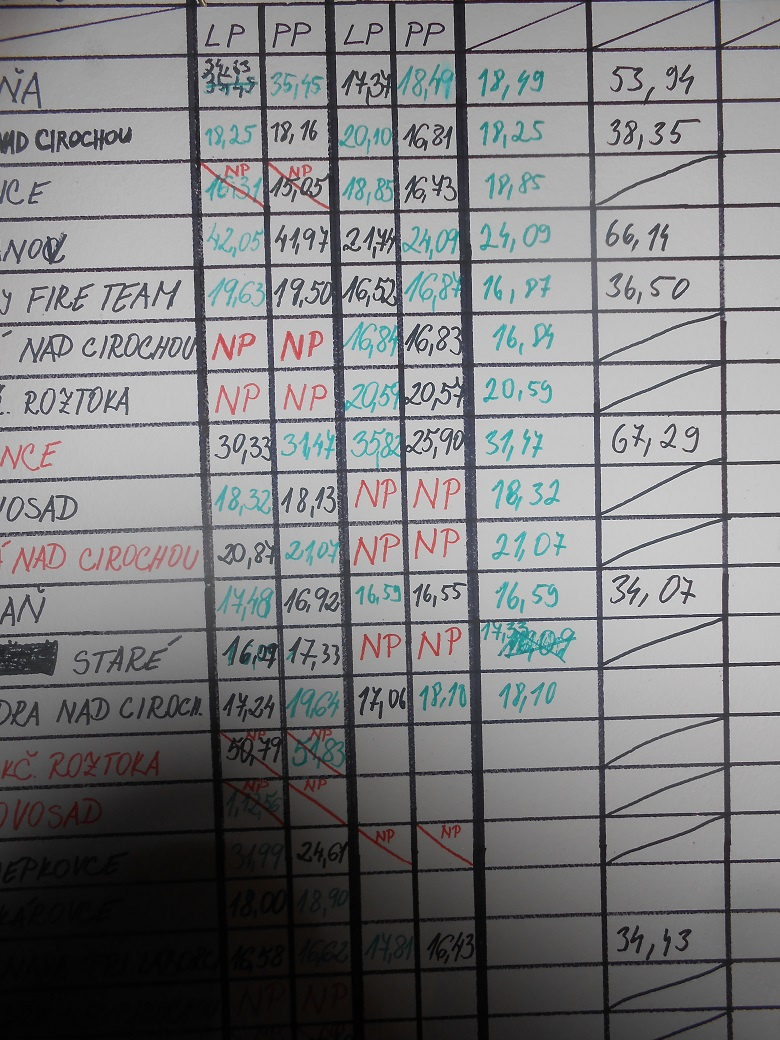 LP PP LP PP
ŇA 35,45 17,37 18,49 18,49 53,94
NAD CIROCHOU 18,25 18,16 20,10 16,81 18,25 38,35
NCE NP 16,31 NP 15,05 18,85 16,73 18,85
NOV 42,05 41,97 21,74 24,09 24,09 66,14
Y FIRE TEAM 19,63 19,50 16,52 16,87 16,87 36,50
NAD CIROCHOU NP NP 16,84 16,83 16,84
. ROZTOKA NP NP 20,59 20,57 20,59
NCE 30,33 31,47 35,82 25,90 31,47 67,29
OSAD 18,32 18,13 NP NP 18,32
NAD CIROCHOU 20,87 21,07 NP NP 21,07
AŇ 17,48 16,92 16,59 16,55 16,59 34,07
STARÉ 17,33 NP NP 17,33
DRA NAD CIROCH. 17,24 19,64 17,06 18,10 18,10
KČ. ROZTOKA NP 50,79 NP 51,83
OVOSAD NP NP
EPKOVCE 31,99 24,61 NP NP
18,00 18,90
16,58 16,62 17,81 16,43 34,43
NP NP